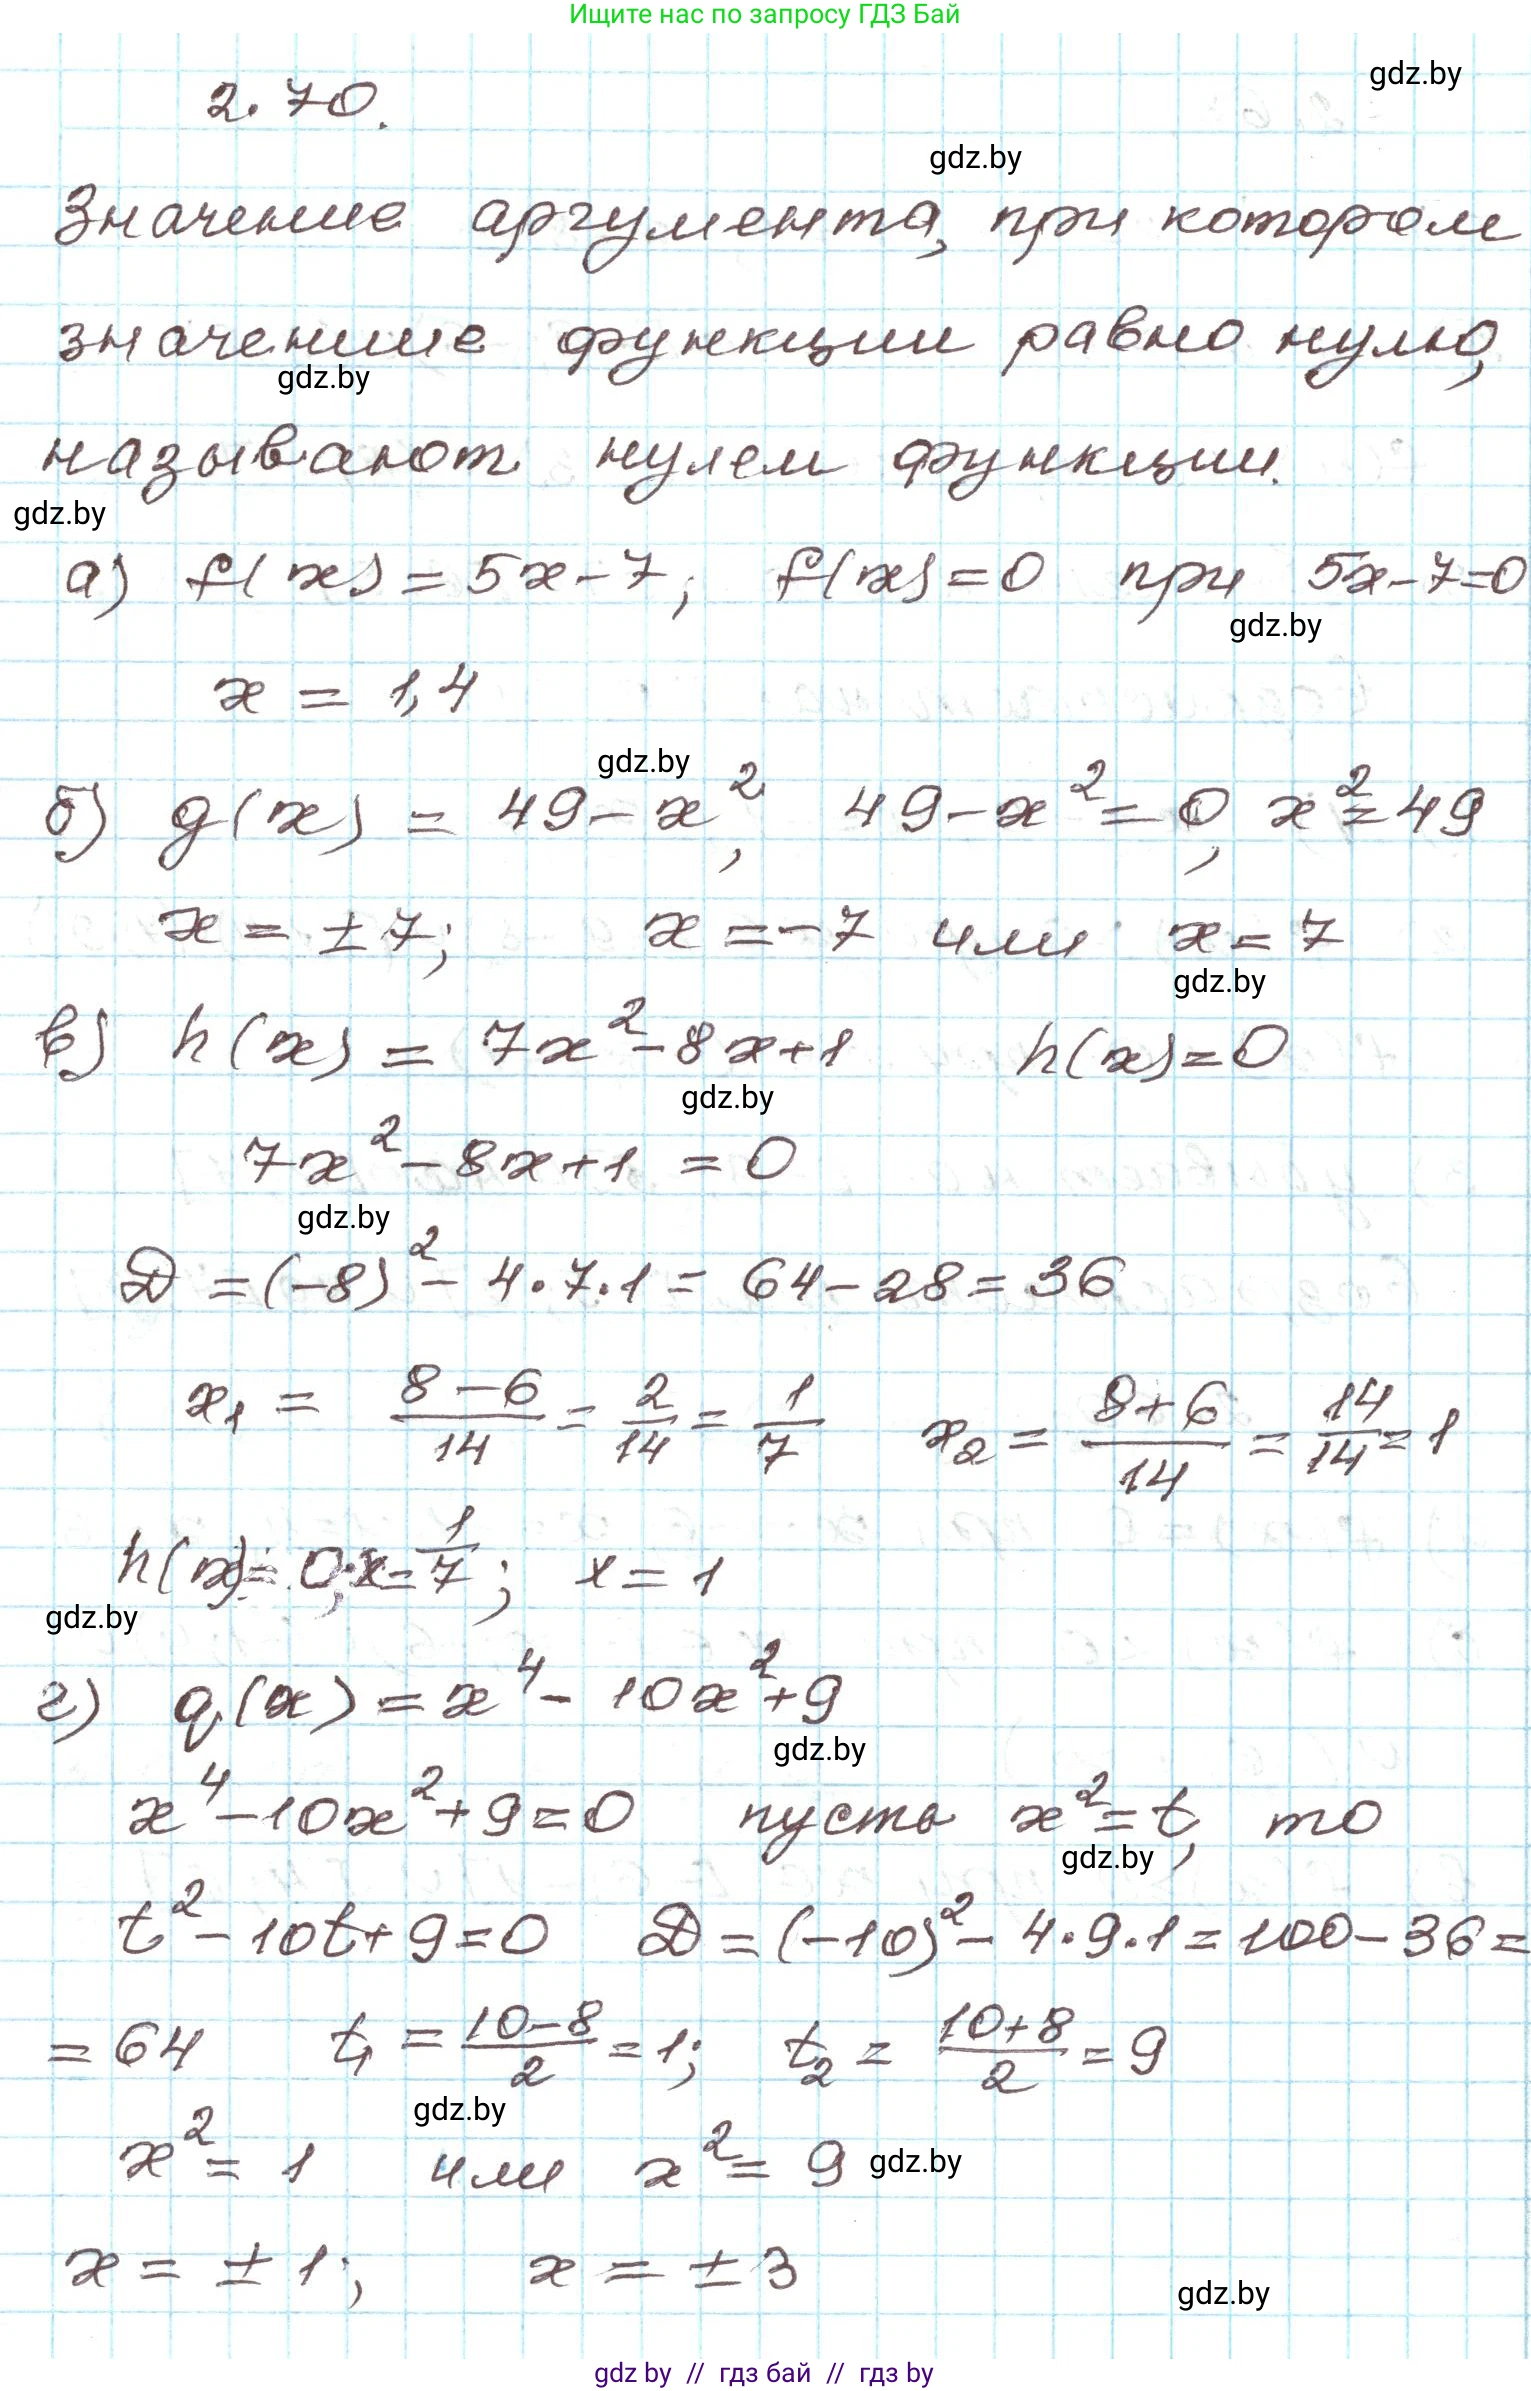 Ищите нас по запросу ГДЗ Бай
gdz.by
2.70.
gdz.by
Значение аргумента, при котором
значение функции равно нулю,
gdz.by
называют нулем функции.
gdz.by
а) f(x) = 5x - 7; f(x) = 0 при 5x - 7 = 0
gdz.by
x = 1,4
gdz.by
б) g(x) = 49 - x², 49 - x² = 0, x² = 49
x = ±7; x = -7 или x = 7
gdz.by
в) h(x) = 7x² - 8x + 1 h(x) = 0
gdz.by
7x² - 8x + 1 = 0
gdz.by
D = (-8)² - 4·7·1 = 64 - 28 = 36
x₁ = (8 - 6)/14 = 2/14 = 1/7 x₂ = (8 + 6)/14 = 14/14 = 1
h(x) = 0, x = 1/7; x = 1
gdz.by
г) q(x) = x⁴ - 10x² + 9
gdz.by
x⁴ - 10x² + 9 = 0 пусть x² = t, то
gdz.by
t² - 10t + 9 = 0 D = (-10)² - 4·9·1 = 100 - 36 =
= 64 t₁ = (10 - 8)/2 = 1; t₂ = (10 + 8)/2 = 9
gdz.by
x² = 1 или x² = 9 gdz.by
x = ±1; x = ±3
gdz.by
gdz by // гдз бай // гдз by